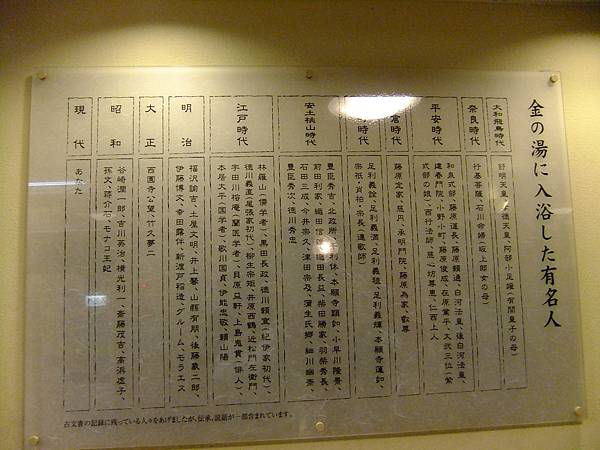 金の湯に入浴した有名人
大和飛鳥時代
舒明天皇、孝徳天皇、阿部小足媛(有間皇子の母)
奈良時代
行基菩薩、石川命婦(坂上郎女の母)
平安時代
和泉式部、藤原道長、藤原頼通、白河法皇、後白河法皇、
建春門院、小野小町、藤原俊成、在原業平、大弐三位(紫
式部の娘)、西行法師、慈心坊尊恵、仁西上人
倉時代
藤原定家、慈円、承明門院、藤原為家、叡尊
時代
足利義詮、足利義満、足利義稙、足利義輝、本願寺蓮如、
宗祇・肖柏・宗長(連歌師)
安土桃山時代
豊臣秀吉、北政所、千利休、本願寺顕如、小早川隆景、
前田利家、織田信雄、織田長益、柴田勝家、羽柴秀長、
石田三成、今井宗久、津田宗及、蒲生氏郷、細川幽斎、
豊臣秀次、徳川秀忠
江戸時代
林羅山(儒学者)、黒田長政、徳川頼宣(紀伊家初代)、
徳川義直(尾張家初代)、柳生宗矩、井原西鶴、近松門左衛門、
宇田川榕庵(蘭医学者)、貝原益軒、上島鬼貫(俳人)、
本居大平(国学者)、歌川国貞、伊能忠敬、頼山陽
明治
福沢諭吉、土屋文明、井上馨、山縣有朋、後藤象二郎、
伊藤博文、幸田露伴、新渡戸稲造、グルーム、モラエス
大正
西園寺公望、竹久夢二
昭和
谷崎潤一郎、吉川英治、横光利一、斎藤茂吉、高浜虚子、
孫文、蒋介石、モナコ王妃
現代
あなた
古文書の記録に残っている人々をあげましたが、伝承、説話が一部含まれています。